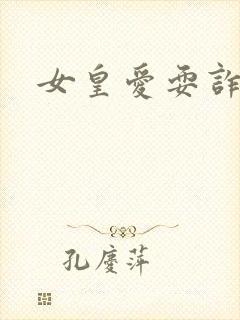 女皇愛耍詐
孔慶萍